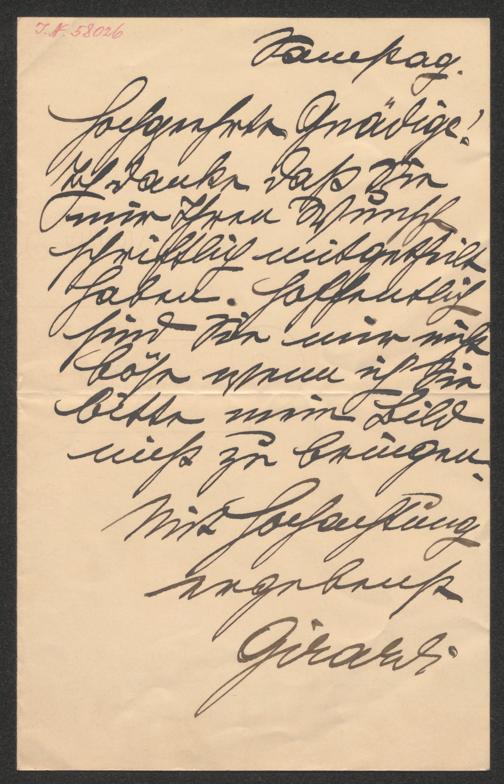 J.N. 58026
Samstag.
Hochgeehrte Gnädige!
Ich danke daß Sie
mir Ihren Wunsch
schriftlich mitgetheilt
haben. Hoffentlich
sind Sie mir nicht
böse wenn ich Sie
bitte mein Bild
nicht zu bringen.
Mit Hochachtung
ergebenst
Girardi